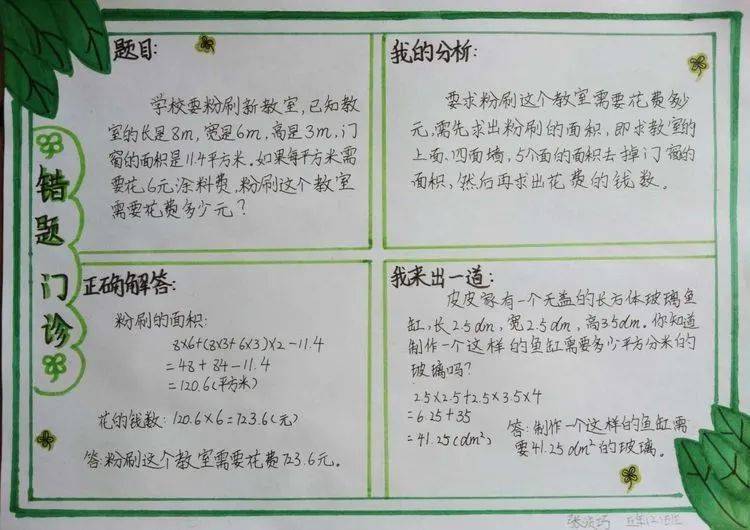 错题门诊
题目:
学校要粉刷新教室,已知教
室的长是8m,宽是6m,高是3m,门
窗的面积是11.4平方米,如果每平方米需
要花6元涂料费,粉刷这个教室
需要花费多少元?
我的分析:
要求粉刷这个教室需要花费多少
元,需先求出粉刷的面积,即求教室的
上面、四面墙,5个面的面积去掉门窗的
面积,然后再求出花费的钱数。
正确解答:
粉刷的面积:
8×6+(8×3+6×3)×2-11.4
=48+84-11.4
=120.6(平方米)
花的钱数:120.6×6=723.6(元)
答:粉刷这个教室需要花费723.6元。
我来出一道:
皮皮家有一个无盖的长方体玻璃鱼
缸,长2.5dm,宽2.5dm,高3.5dm.你知道
制作一个这样的鱼缸需要多少平方分米的
玻璃吗?
2.5×2.5+2.5×3.5×4
=6.25+35
=41.25(dm²)
答:制作一个这样的鱼缸需
要41.25dm²的玻璃。